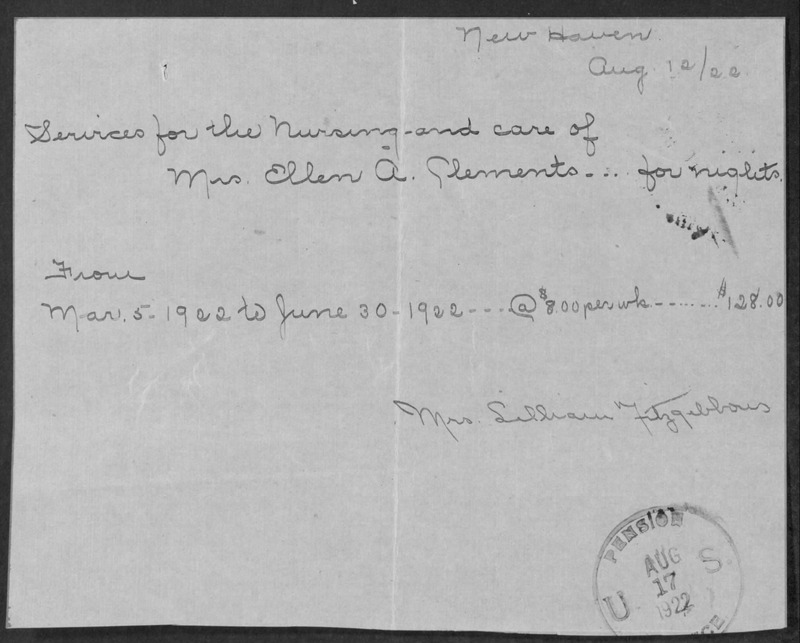 New Haven.
Aug. 12/22.
Services for the Nursing and care of
Mrs. Ellen A. Clements --- for nights.
From
Mar. 5 - 1922 to June 30 - 1922 ---- @ $8.00 per wk ------- $128.00
Mrs. Lillian Fitzgibbons
PENSION
AUG
17
1922
U S